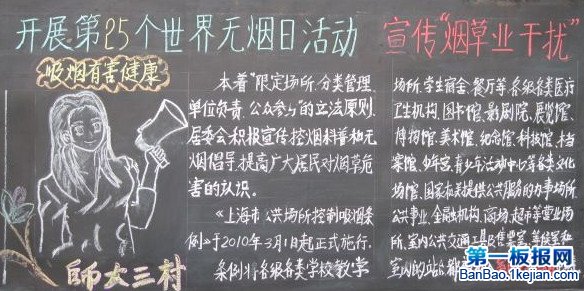 开展第25个世界无烟日活动 宣传“烟草业干扰”
吸烟有害健康
本着“限定场所、分类管理、
单位负责、公众参与”的立法原则,
居委会积极宣传控烟科普和无
烟倡导,提高广大居民对烟草危
害的认识。
《上海市公共场所控制吸烟条
例》于2010年3月1日起正式施行,
条例将各级各类学校教学
场所、学生宿舍、餐厅等、各级各类医疗
卫生机构、图书馆、影剧院、展览馆、
博物馆、美术馆、纪念馆、科技馆、档
案馆、少年宫、青少年活动中心等各类文化
场馆、国家机关提供公共服务的办事场所、
公共事业、金融机构、商场、超市等营业场
所、室内公共交通工具及售票室、等候室和
室内的站台都
師大三村
第一板报网
BanBao.1kejian.com